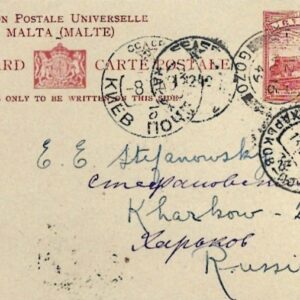 ON POSTALE UNIVERSELLE
MALTA (MALTE)
ARD CARTE POSTALE
S ONLY TO BE WRITTEN ON THIS SIDE.
GOZO
КИЕВ
ХАРЬКОВ
E. E. Stefanowsk
Стефановс
Kharkow -
Харьков
Russi